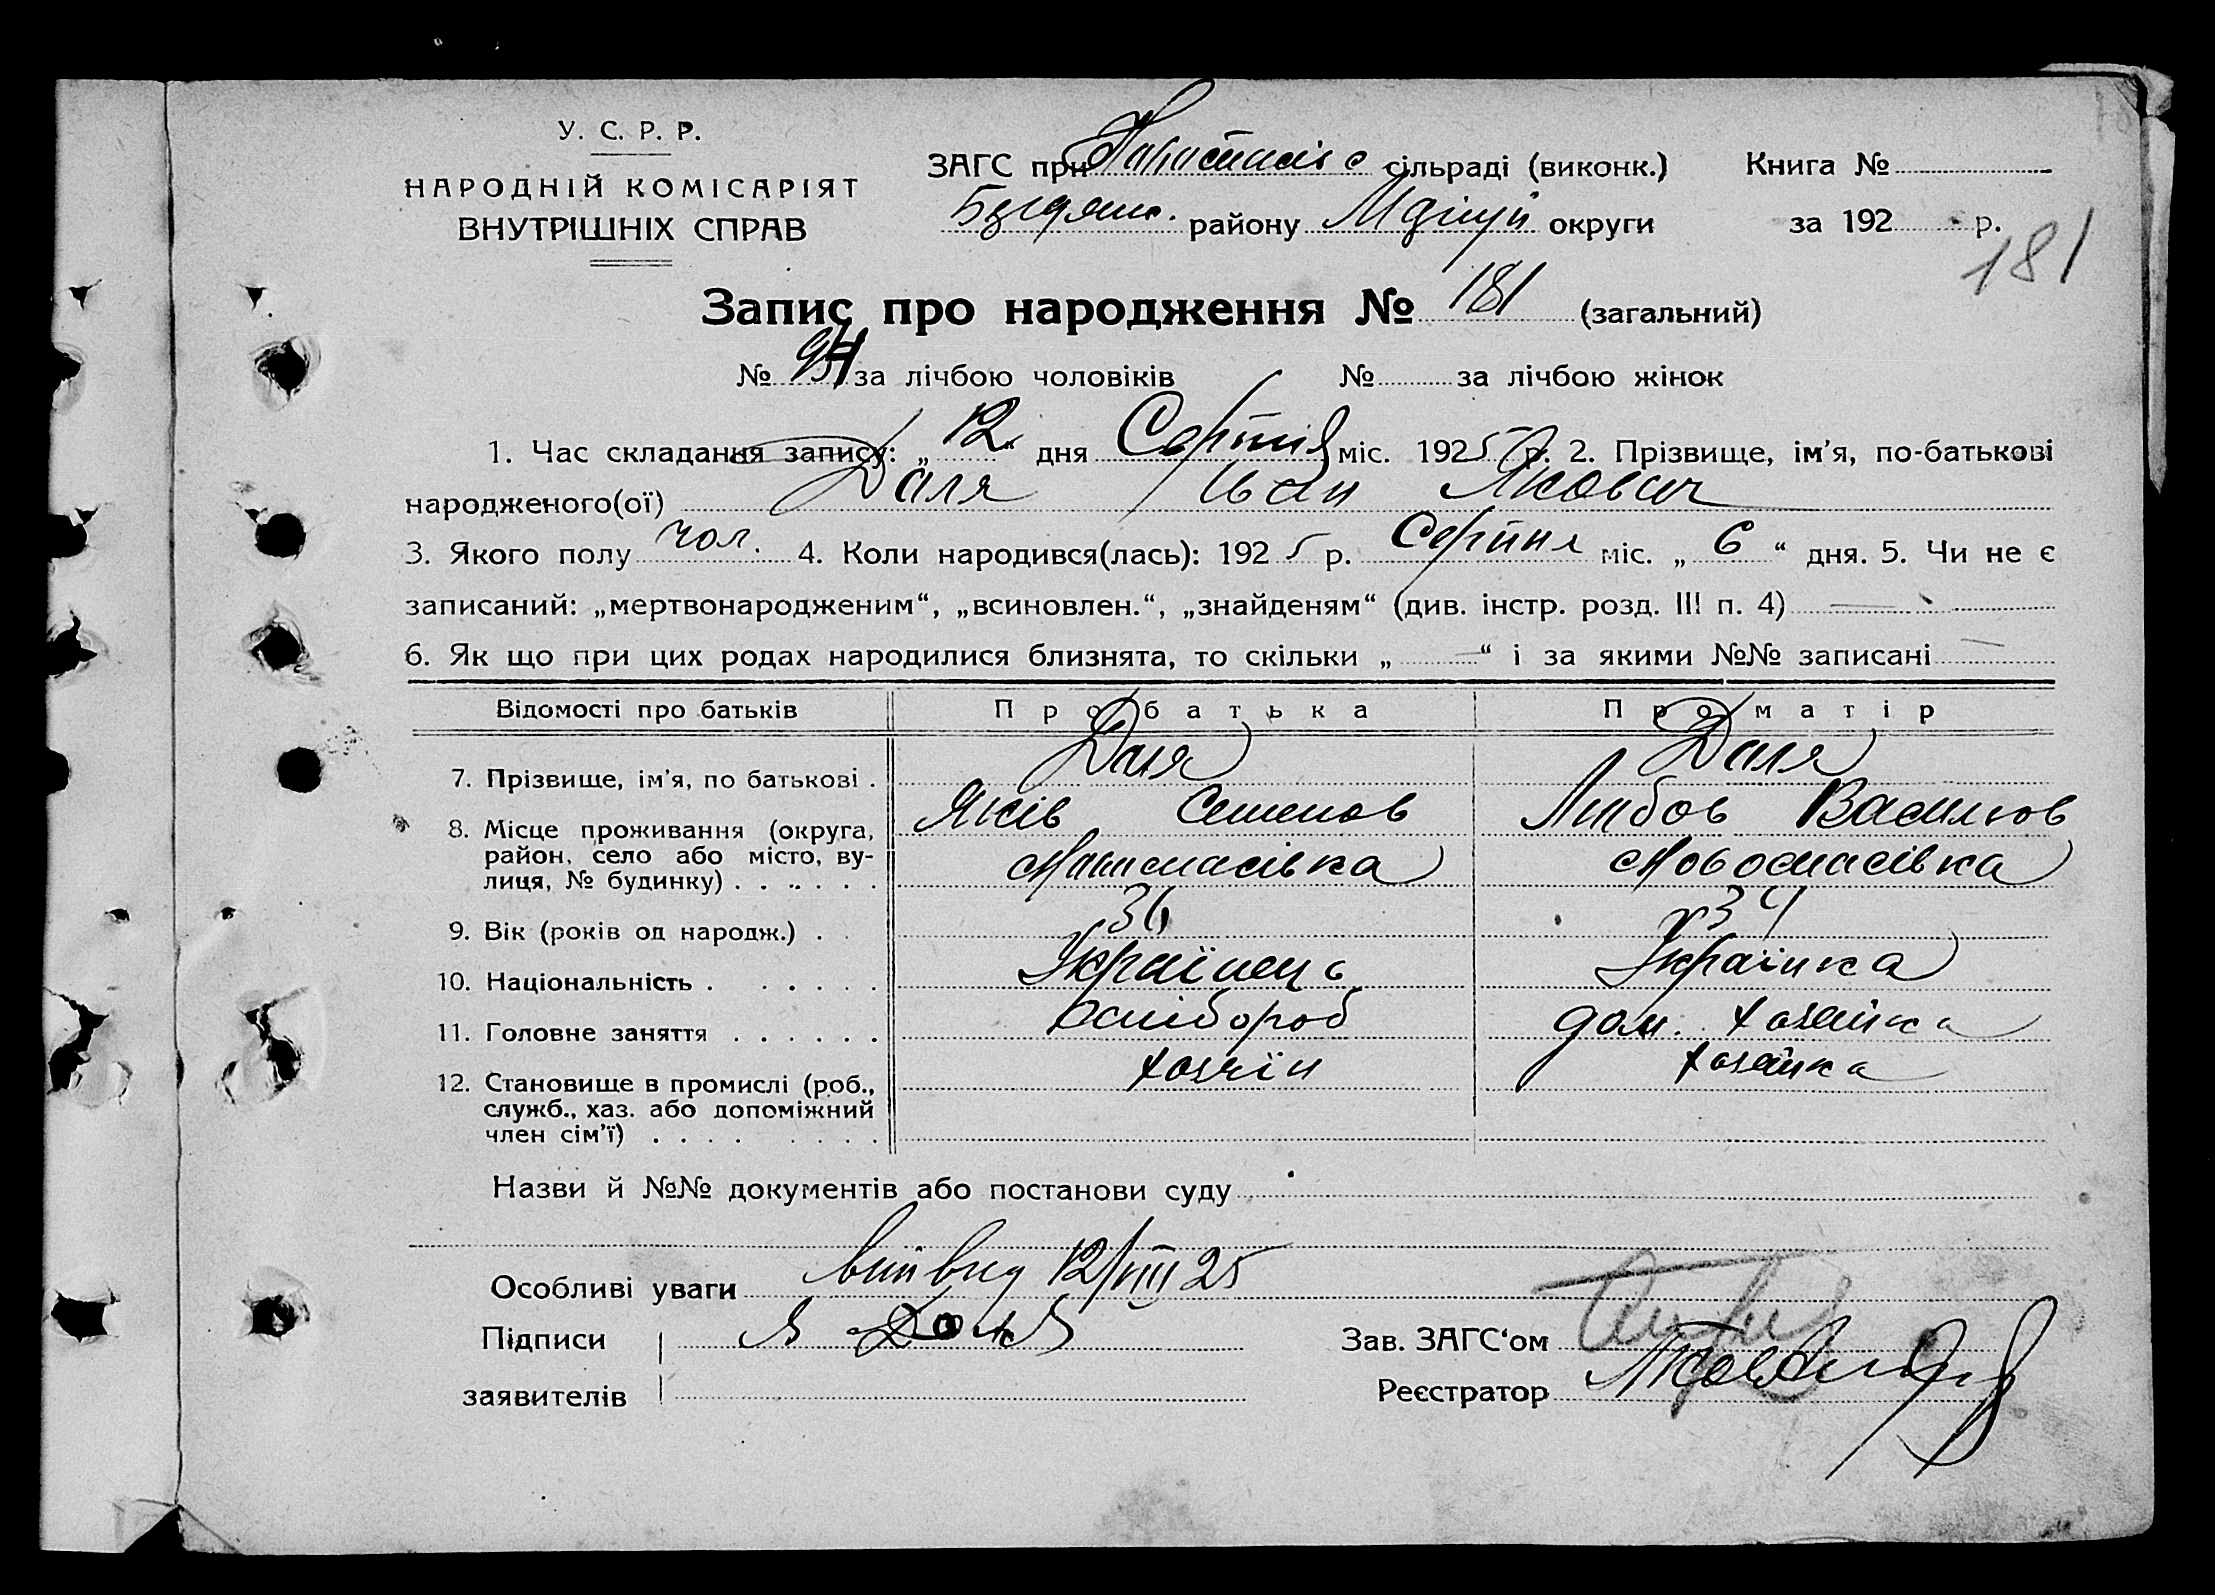 У. С. Р. Р.
НАРОДНІЙ КОМІСАРІЯТ
ВНУТРІШНІХ СПРАВ
ЗАГС при сільраді (виконк.) Книга №
району округи за 192 р.
181
Запис про народження № 181 (загальний)
№ за лічбою чоловіків № за лічбою жінок
1. Час складання запису: „ 12 “ дня Серпня міс. 1925 р. 2. Прізвище, ім'я, по-батькові
народженого(ої) Даля Іван Якович
3. Якого полу чол. 4. Коли народився(лась): 1925 р. Серпня міс. „ 6 “ дня. 5. Чи не є
записаний: „мертвонародженим“, „всиновлен.“, „знайденям“ (див. інстр. розд. III п. 4) —
6. Як що при цих родах народилися близнята, то скільки „ — “ і за якими №№ записані —
Відомості про батьків Про батька Про матір
7. Прізвище, ім'я, по батькові . Даля Даля
Яків Семенов Любов Васильов
8. Місце проживання (округа, район, село або місто, вулиця, № будинку) . . . . . . Новоспасівка Новоспасівка
9. Вік (років од народж.) . . 36 34
10. Національність . . . . . . Українець Українка
11. Головне заняття . . . . . . хлібороб дом. хазяйка
12. Становище в промислі (роб., служб., хаз. або допоміжний член сім'ї) . . . . . . . . хазяїн хазяйка
Назви й №№ документів або постанови суду
Особливі уваги 12/VIII 25
Підписи Я Даля Зав. ЗАГС'ом
заявителів Реєстратор